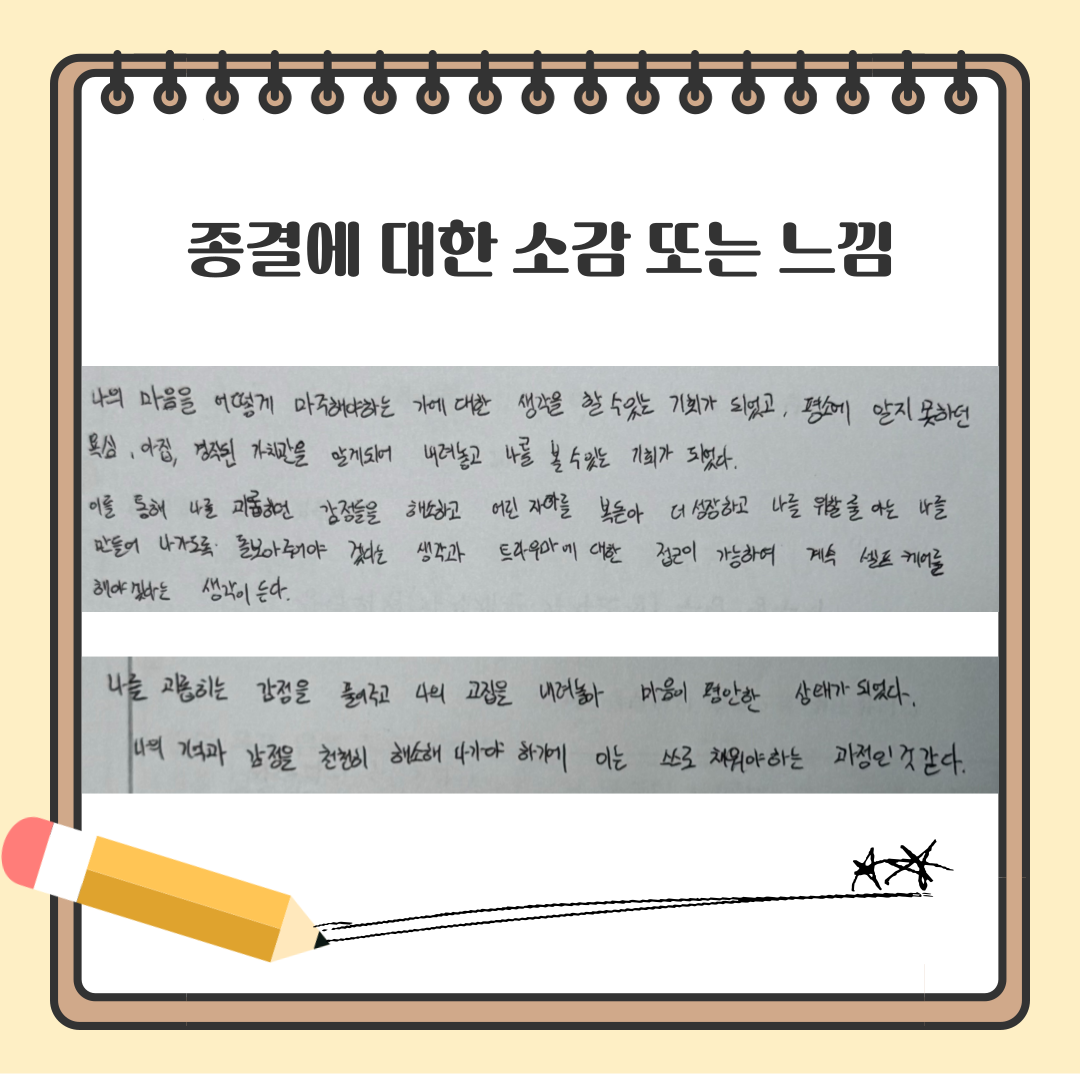 종결에 대한 소감 또는 느낌
나의 마음을 어떻게 마주해야하는 가에 대한 생각을 할 수있는 기회가 되었고, 평소에 알지 못하던
욕심, 아집, 경직된 가치관을 알게되어 내려놓고 나를 볼 수있는 기회가 되었다.
이를 통해 나를 괴롭히던 감정들을 해소하고 어린 자아를 복돋아 더 성장하고 나를 위할 줄 아는 나를
만들어 나가도록 돌보아주어야 겠다는 생각과 트라우마에 대한 접근이 가능하여 계속 셀프 케어를
해야겠다는 생각이 든다.
나를 괴롭히는 감정을 풀어주고 나의 고집을 내려놓아 마음이 평안한 상태가 되었다.
나의 기억과 감정을 천천히 해소해 나가야 하기에 이는 스스로 채워야하는 과정인 것 같다.